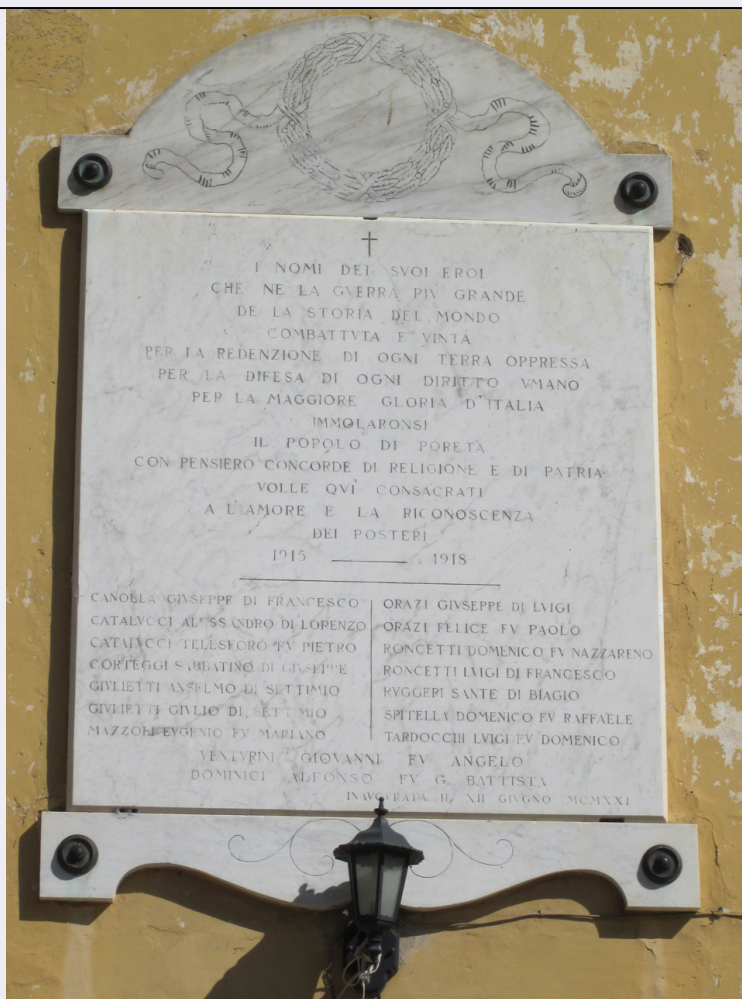 I NOMI DEI SVOI EROI
CHE NE LA GVERRA PIV GRANDE
DE LA STORIA DEL MONDO
COMBATTVTA E VINTA
PER LA REDENZIONE DI OGNI TERRA OPPRESSA
PER LA DIFESA DI OGNI DIRITTO VMANO
PER LA MAGGIORE GLORIA D'ITALIA
IMMOLARONSI
IL POPOLO DI PORETA
CON PENSIERO CONCORDE DI RELIGIONE E DI PATRIA
VOLLE QVÌ CONSACRATI
A L'AMORE E LA RICONOSCENZA
DEI POSTERI
1915 1918
CANOLLA GIVSEPPE DI FRANCESCO
CATALVCCI ALESSANDRO DI LORENZO
CATALVCCI TELLSFORO FV PIETRO
CORTEGGI SABBATINO DI GIVSEPPE
GIVLIETTI ANSELMO DI SETTIMIO
GIVLIETTI GIVLIO DI SETTIMIO
MAZZOLI EVGENIO FV MARIANO
ORAZI GIVSEPPE DI LVIGI
ORAZI FELICE FV PAOLO
RONCETTI DOMENICO FV NAZZARENO
RONCETTI LVIGI DI FRANCESCO
RVGGERI SANTE DI BIAGIO
SPITELLA DOMENICO FV RAFFAELE
TARDOCCHI LVIGI FV DOMENICO
VENTVRINI GIOVANNI FV ANGELO
DOMINICI ALFONSO FV G. BATTISTA
INAVGVRATA IL XII GIVGNO MCMXXI